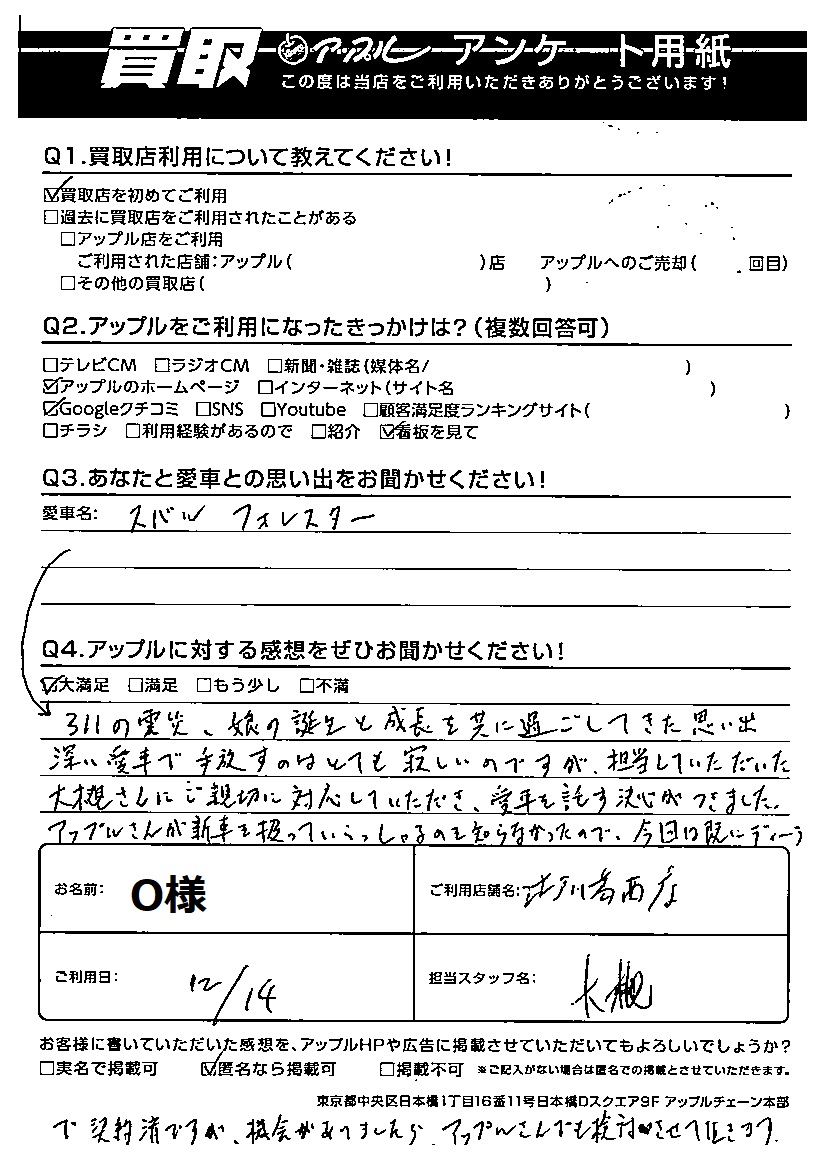 買取 アップル アンケート用紙
この度は当店をご利用いただきありがとうございます!
Q1.買取店利用について教えてください!
☑買取店を初めてご利用
□過去に買取店をご利用されたことがある
□アップル店をご利用
ご利用された店舗:アップル( )店 アップルへのご売却( 回目)
□その他の買取店( )
Q2.アップルをご利用になったきっかけは?(複数回答可)
□テレビCM □ラジオCM □新聞・雑誌(媒体名/ )
☑アップルのホームページ □インターネット(サイト名 )
☑Googleクチコミ □SNS □Youtube □顧客満足度ランキングサイト( )
□チラシ □利用経験があるので □紹介 ☑看板を見て
Q3.あなたと愛車との思い出をお聞かせください!
愛車名: スバル フォレスター
Q4.アップルに対する感想をぜひお聞かせください!
☑大満足 □満足 □もう少し □不満
311の震災、娘の誕生と成長を共に過ごしてきた思い出
深い愛車で手放すのはとても寂しいのですが、担当していただいた
大槻さんにご親切に対応していただき、愛車を託す決心がつきました。
アップルさんが新車を扱っていらっしゃるのを知らなかったので、今回は既にディーラ
お名前: O様
ご利用店舗名: 江戸川葛西店
ご利用日: 12/14
担当スタッフ名: 大槻
お客様に書いていただいた感想を、アップルHPや広告に掲載させていただいてもよろしいでしょうか?
□実名で掲載可 ☑匿名なら掲載可 □掲載不可 ※ご記入がない場合は匿名での掲載とさせていただきます。
東京都中央区日本橋1丁目16番11号日本橋Dスクエア9F アップルチェーン本部
で契約済ですが、機会がありましたら、アップルさんでも検討させて頂きます。